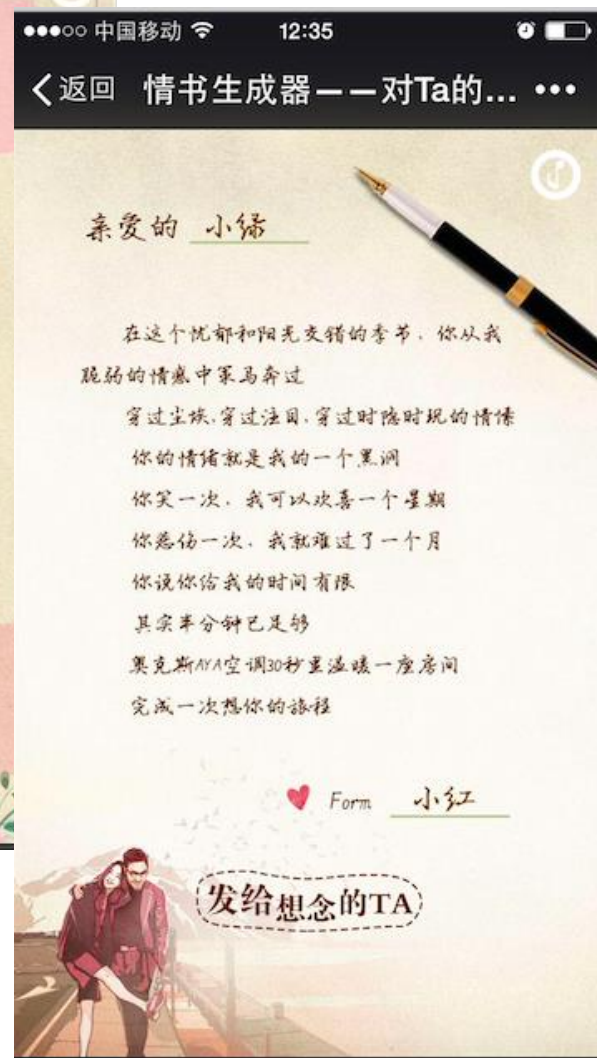 中国移动 12:35
返回 情书生成器——对Ta的...
亲爱的 小绿
在这个忧郁和阳光交错的季节，你从我
脆弱的情感中策马奔过
穿过尘埃，穿过注目，穿过时隐时现的情愫
你的情绪就是我的一个黑洞
你笑一次，我可以欢喜一个星期
你悲伤一次，我就难过了一个月
你说你给我的时间有限
其实半分钟已足够
奥克斯AYA空调30秒里温暖一座房间
完成一次想你的旅程
Form 小红
发给想念的TA